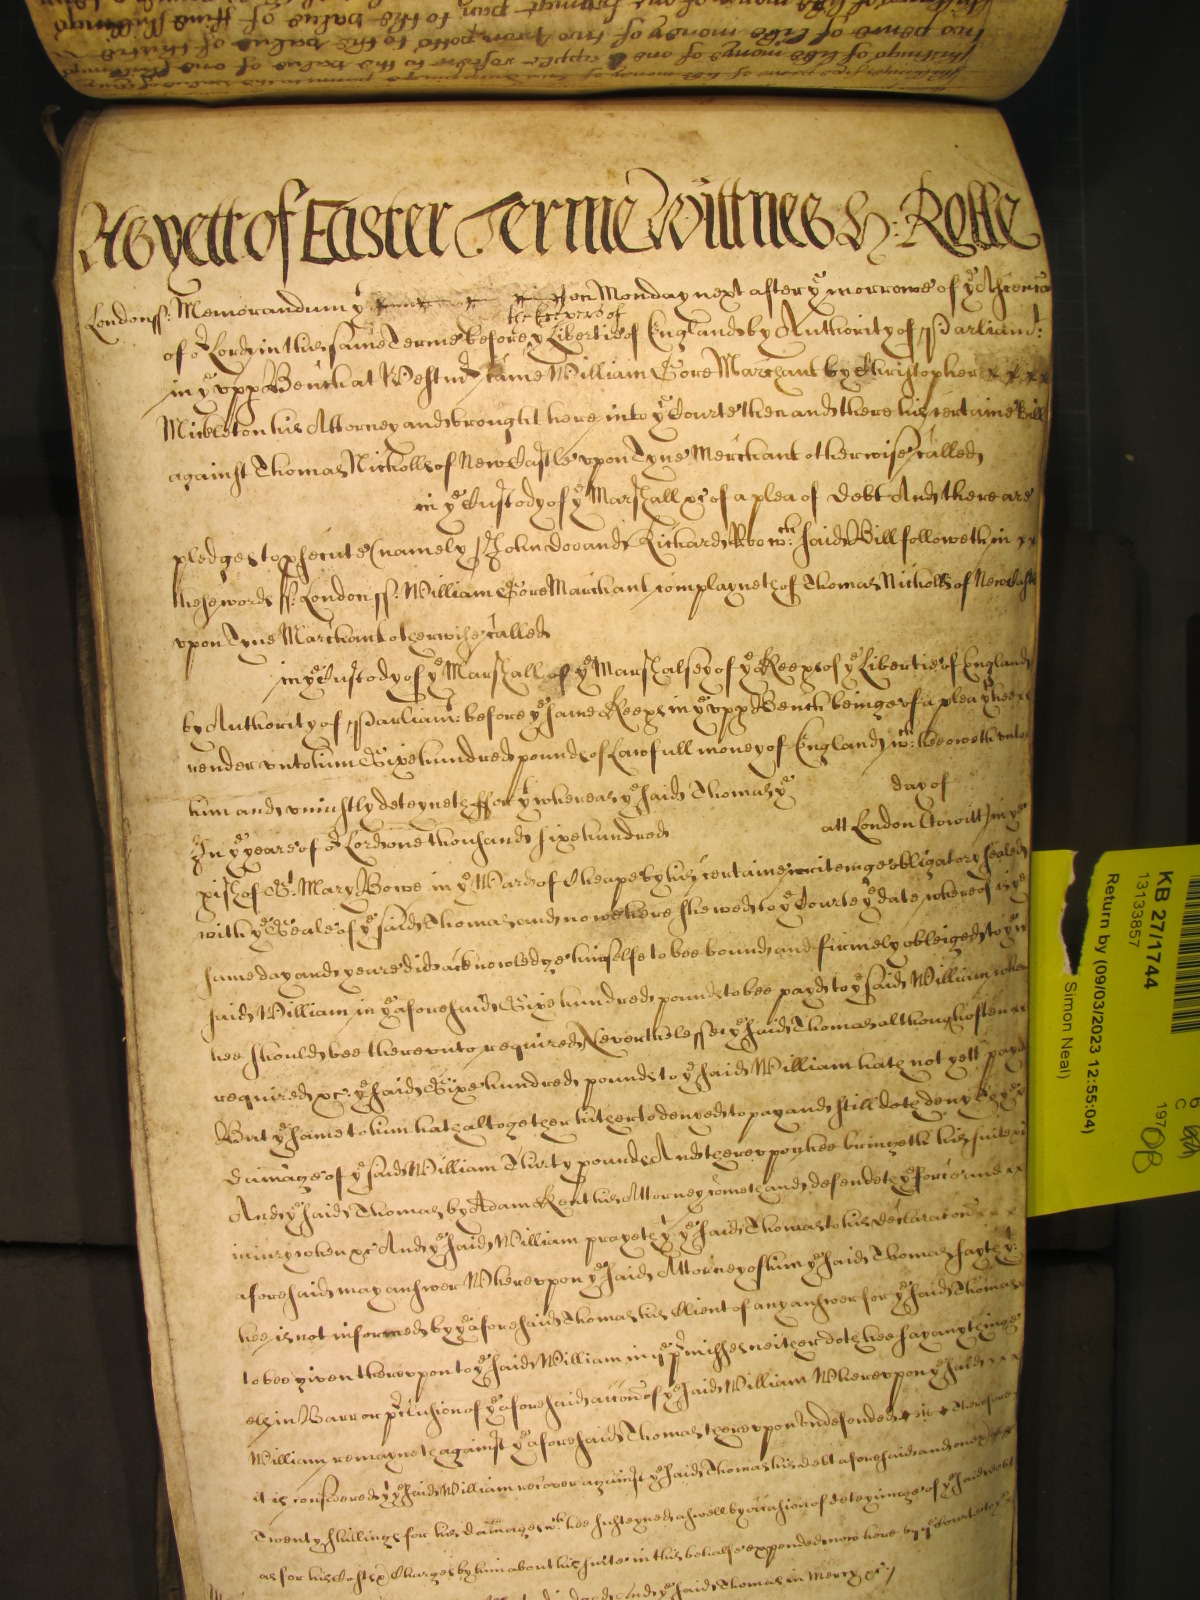 As yett of Easter Terme Wittnes H: Rolle
Londonss: Memorandum yt on Monday next after ye morrowe of ye Ascencon
the keepers of
of or Lord in this same Terme before ye Libertie of England by Authority of Parliamt:
in ye vpp Bench at Westmr came William Gore Marchant by Christopher
Mickleton his Attorney and brought here into ye Courte then and there his certaine Bill
against Thomas Nicholls of New Castle vpon Tyne Merchant otherwise called
in ye Custody of ye Marshall &c of a plea of Debt And there are
pledges to psecute (namely) John Doo and Richard Roo wch: said Bill followeth in
these words ss: London ss: William Gore Marchant complayneth of Thomas Nicholls of New Castle
vpon Tyne Marchant otherwise called
in ye Custody of ye Marshall of ye Marshalsey of ye Keeps of ye Libertie of England
by Authority of Parliamt: before ye same Keeps in ye vpp Bench beinge of a plea yt hee
render vnto him Sixe hundred pounds of Lawfull money of England wch: hee oweth vnto
him and vniustly deteyneth ffor yt whereas ye said Thomas ye day of
In ye yeare of or Lord one thousand sixe hundred att London (to witt) in ye
pish of St Mary Bowe in ye Ward of Cheape by his certaine writeinge obligatory sealed
with ye Seale of ye said Thomas and nowe here shewed to ye Courte ye date whereof is ye
same day and yeare did acknowledge himselfe to bee bound and firmely obleiged to ye
said William in ye aforesaid Sixe hundred pounds to bee payd to ye said William when
hee should bee therevnto required Neverthelesse ye said Thomas although often
required &c: ye said Sixe hundred pounds to ye said William hath not yett payd
But ye same to him hath altogether hitherto denyed to pay and still doth deny
damage of ye said William Thirty pounds And therevpon hee bringeth his suite
And ye said Thomas by Adam Kent his Attorney cometh and defendeth ye force and
iniury when &c And ye said William prayeth yt ye said Thomas to his declaracon
aforesaid may answer Wherevpon ye said Attorney of him ye said Thomas sayth yt
hee is not informed by ye aforesaid Thomas his Client of any answer for ye said Thomas
to bee given therevpon to ye said William in ye pmisses neither doth hee say any thinge
els in Barr or pclusion of ye aforesaid accon of ye said William Wherevpon ye said
William remayneth against ye aforesaid Thomas therevpon vndefended Therefore
it is considered yt ye said William recover against ye said Thomas his debt aforesaid and
Twenty shillings for his damages wch hee susteyned aswell by occasion of deteyninge of ye said debt
as for his Costs & Charges by him about his suite in this behalfe expended now here by ye Courte
And ye said Thomas in Mercy &c
KB 27/1744
13133857
Return by (09/03/2023 12:55:04)
Simon Neal)
197